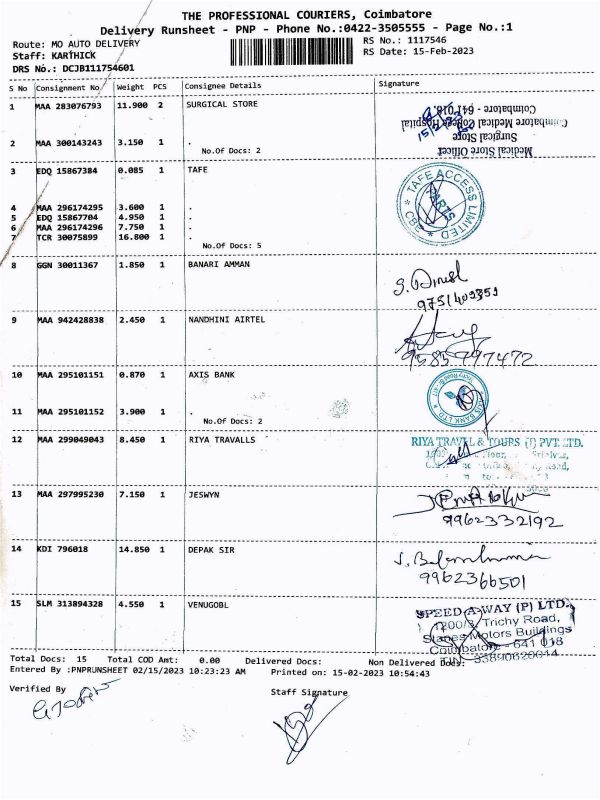 THE PROFESSIONAL COURIERS, Coimbatore
Delivery Runsheet - PNP - Phone No.:0422-3505555 - Page No.:1
Route: MO AUTO DELIVERY RS No.: 1117546
Staff: KARTHICK RS Date: 15-Feb-2023
DRS No.: DCJB111754601
S No Consignment No Weight PCS Consignee Details Signature
1 MAA 283076793 11.900 2 SURGICAL STORE
Medical Store Officer
Surgical Store
Coimbatore Medical College Hospital
Coimbatore - 641 018.
2 MAA 300143243 3.150 1 .
No.Of Docs: 2
3 EDQ 15867384 0.085 1 TAFE
TAFE ACCESS LIMITED
4 MAA 296174295 3.600 1 .
5 EDQ 15867704 4.950 1 .
6 MAA 296174296 7.750 1 .
7 TCR 30075899 16.800 1 .
No.Of Docs: 5
8 GGN 30011367 1.850 1 BANARI AMMAN
9 MAA 942428838 2.450 1 NANDHINI AIRTEL
9585997472
10 MAA 295101151 0.870 1 AXIS BANK
AXIS BANK LTD.
11 MAA 295101152 3.900 1 .
No.Of Docs: 2
12 MAA 299049043 8.450 1 RIYA TRAVALLS
RIYA TRAVEL & TOURS (I) PVT. LTD.
13 MAA 297995230 7.150 1 JESWYN
9962332192
14 KDI 796018 14.850 1 DEPAK SIR
9962366501
15 SLM 313894328 4.550 1 VENUGOBL
SPEED-A-WAY (P) LTD.,
1200/3, Trichy Road,
Stanes Motors Buildings
Coimbatore - 641 018
Total Docs: 15 Total COD Amt: 0.00 Delivered Docs: Non Delivered Docs:
Entered By :PNPRUNSHEET 02/15/2023 10:23:23 AM Printed on: 15-02-2023 10:54:43
Verified By Staff Signature